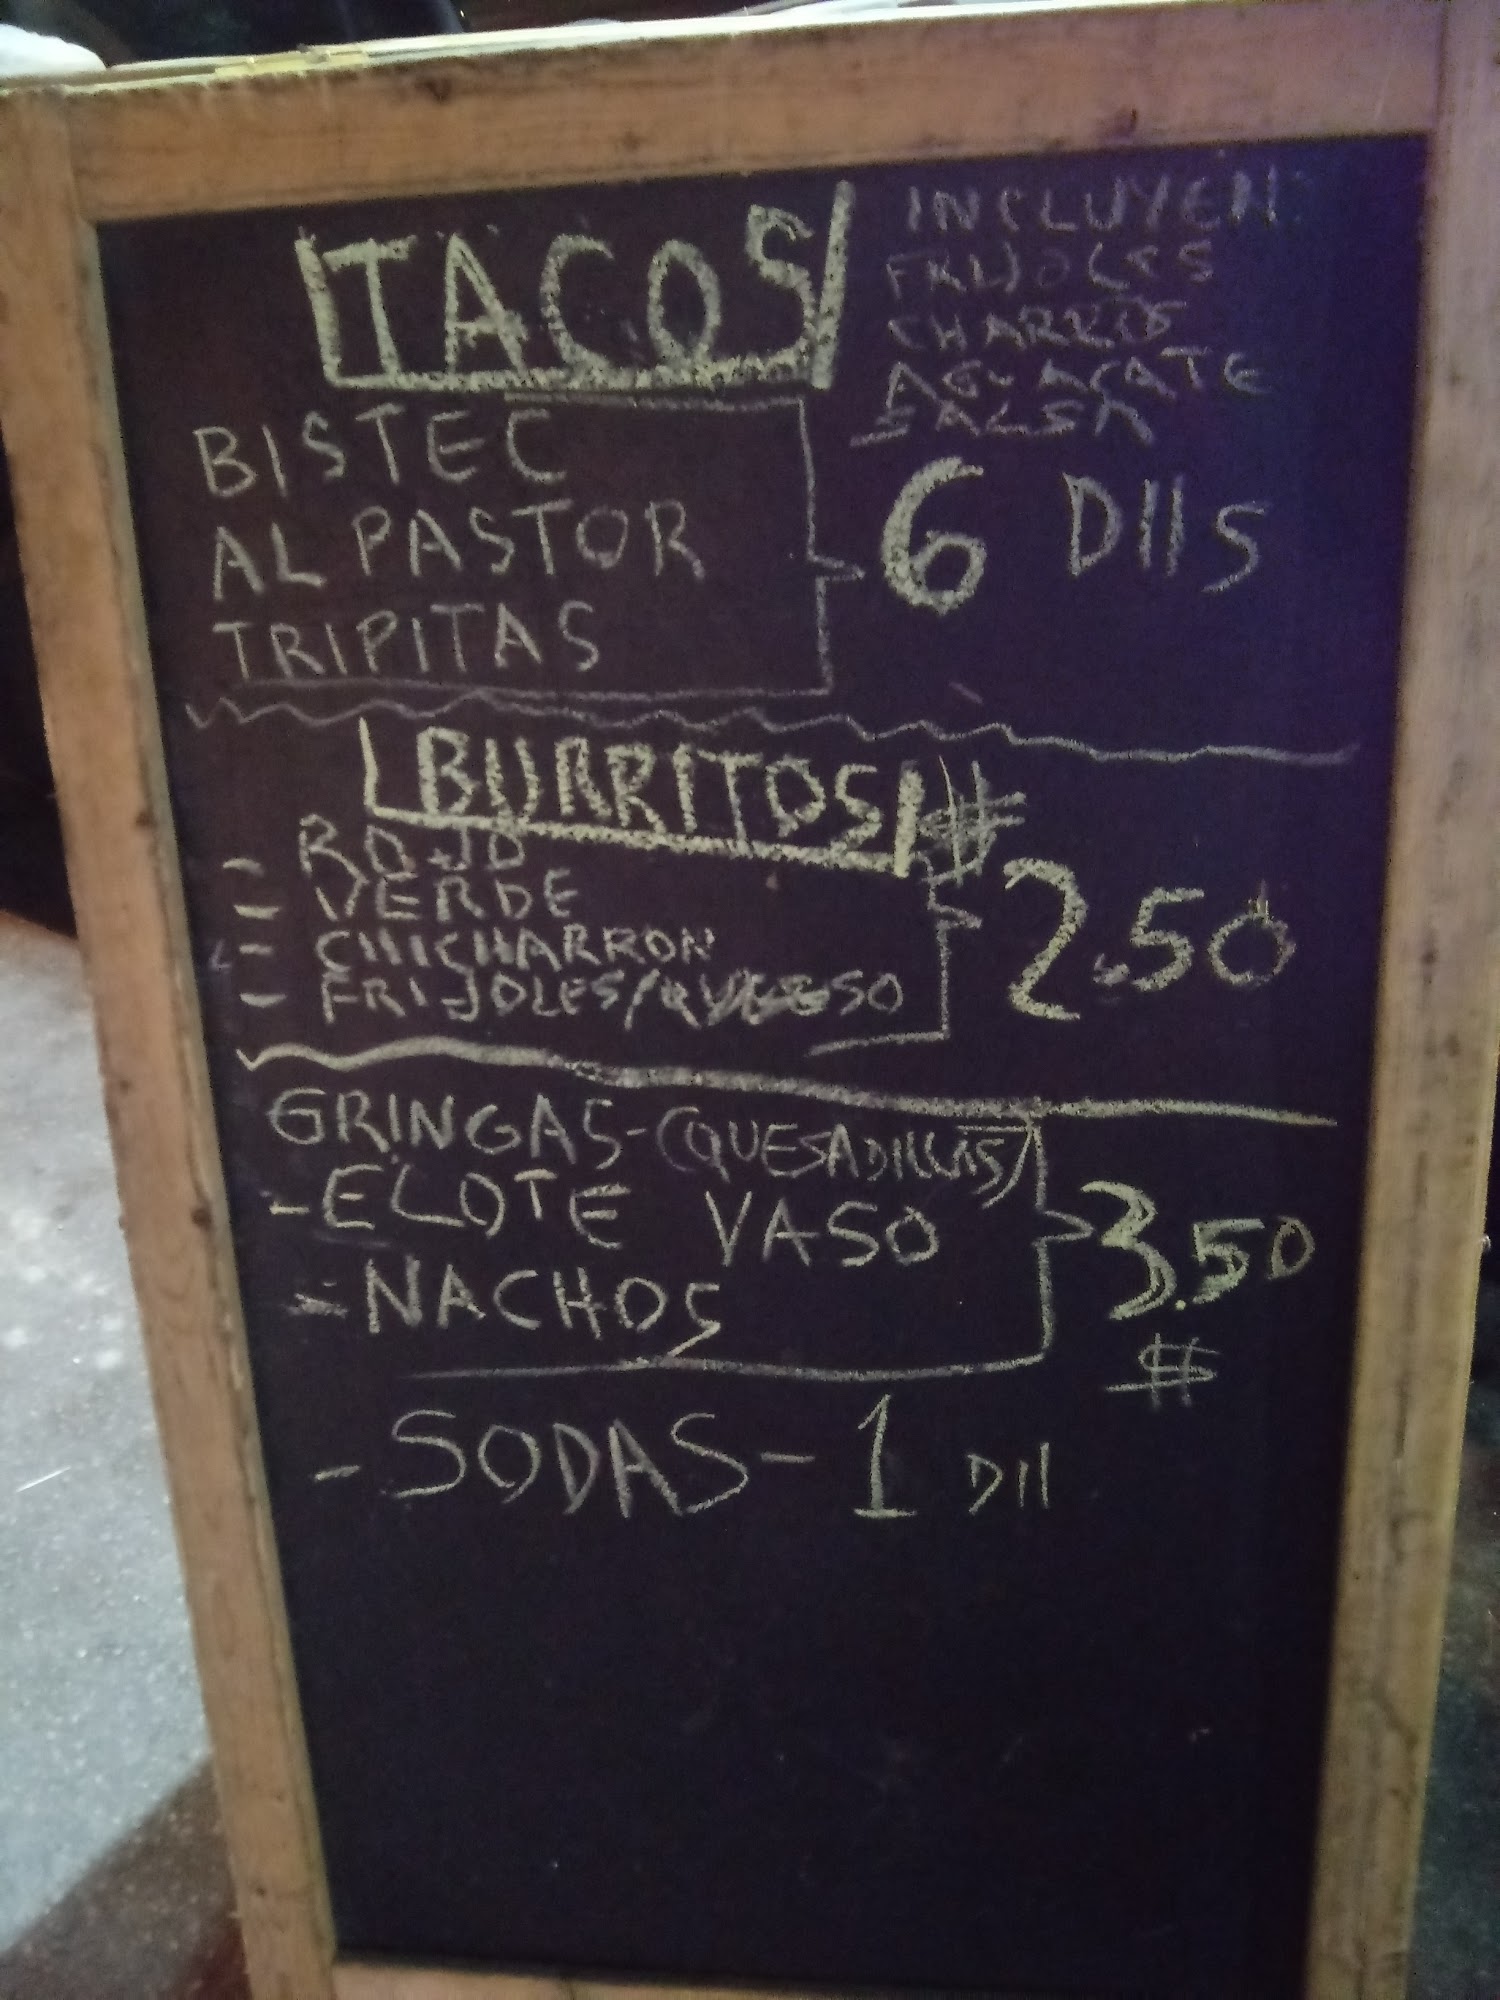 TACOS
INCLUYEN
FRIJOLES
CHARROS
AGUACATE
SALSA
BISTEC
AL PASTOR
TRIPITAS
6 Dlls
BURRITOS
- ROJO
- VERDE
- CHICHARRON
- FRIJOLES/QUESO
$ 2.50
GRINGAS-(QUESADILLAS)
-ELOTE VASO
-NACHOS
3.50
$
-SODAS-1 Dll